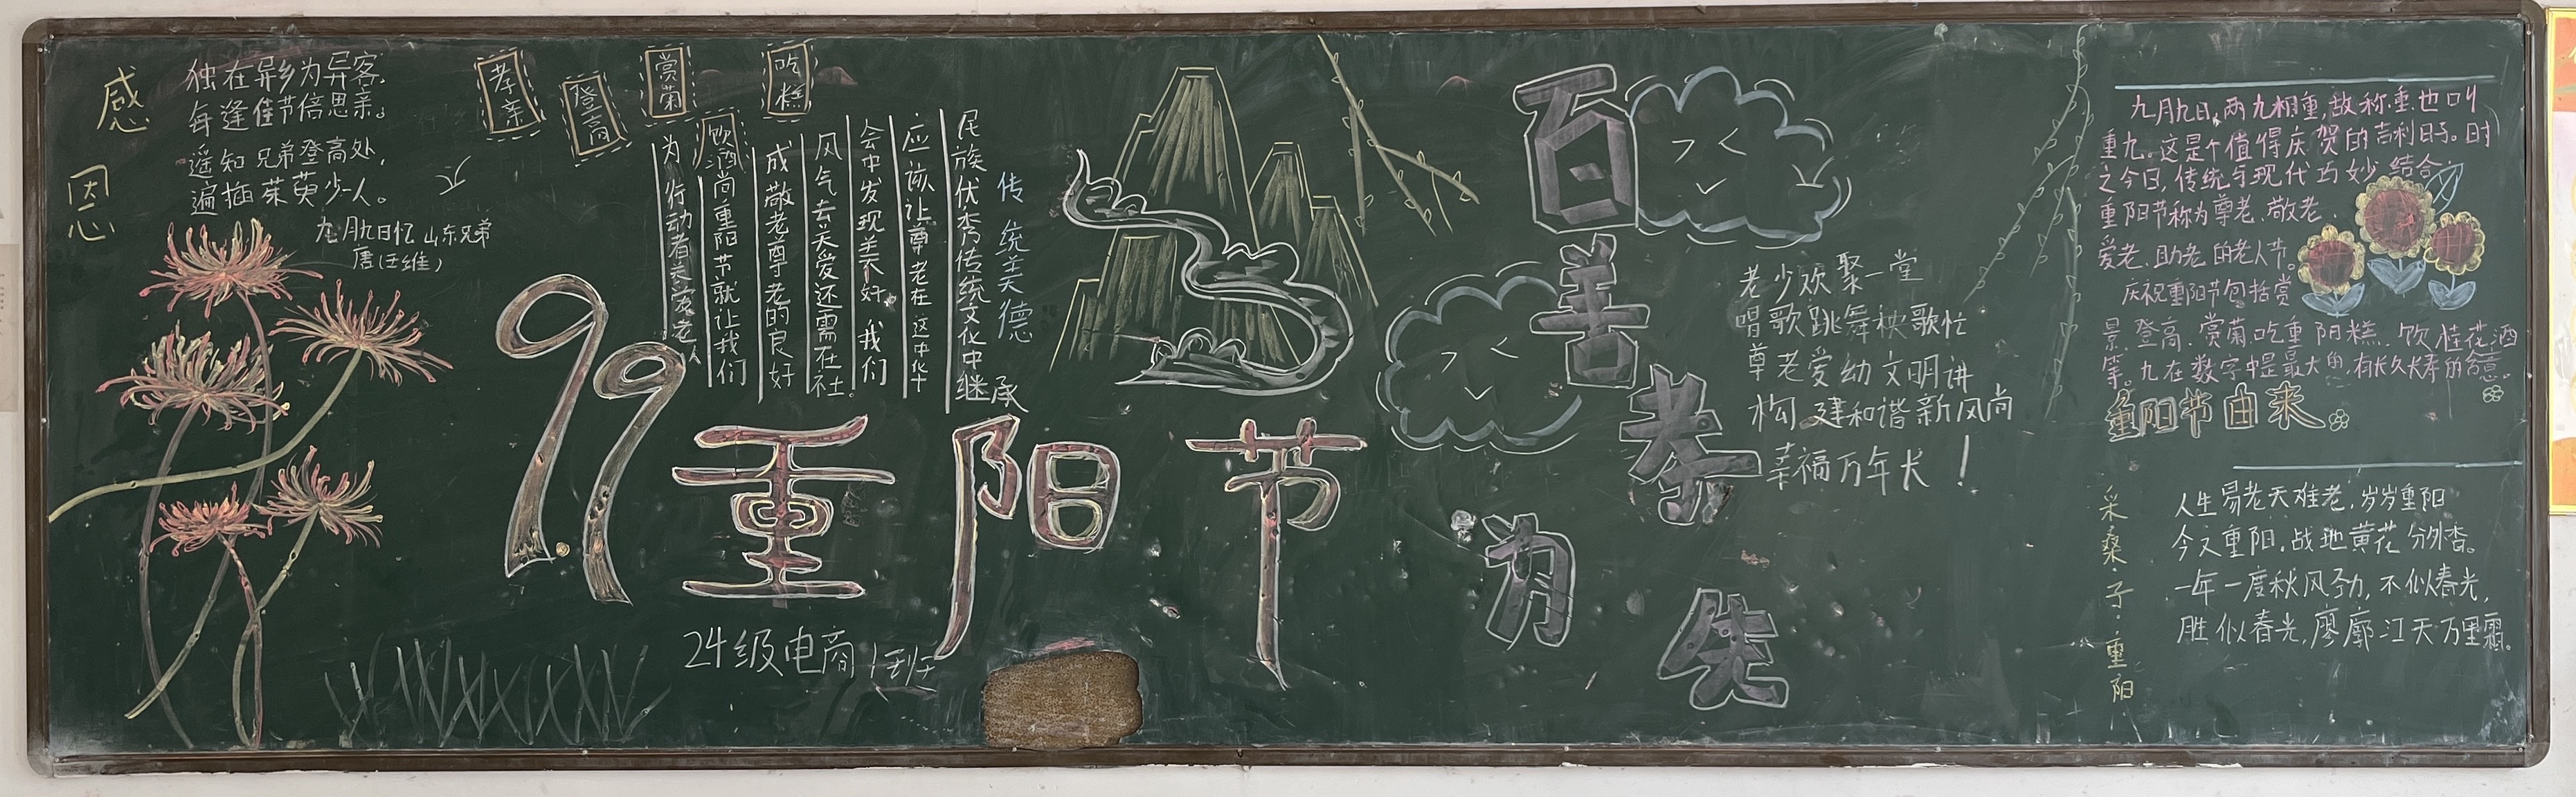 感恩
独在异乡为异客，
每逢佳节倍思亲。
遥知兄弟登高处，
遍插茱萸少一人。
九月九日忆山东兄弟
唐（王维）
孝亲
登高
赏菊
饮酒
吃糕
传统美德
民族优秀传统文化中继承
应该让尊老在这中华
会中发现美不好。我们
风气去关爱还需在社
成敬老尊老的良好
尚重阳节就让我们
为行动者关爱老人
99重阳节
24级电商1班
百善孝为先
老少欢聚一堂
唱歌跳舞秧歌忙
尊老爱幼文明讲
构建和谐新风尚
幸福万年长！
九月九日，两九相重，故称重也叫
重九。这是个值得庆贺的吉利日子。日时
之今日，传统与现代巧妙结合，
重阳节称为尊老、敬老、
爱老、助老的老人节。
庆祝重阳节包括赏
景、登高、赏菊、吃重阳糕、饮桂花酒
等。九在数字中是最大的，有长久长寿的含意。
重阳节由来
采桑子·重阳
人生易老天难老，岁岁重阳
今又重阳，战地黄花分外香。
一年一度秋风劲，不似春光，
胜似春光，廖廓江天万里霜。